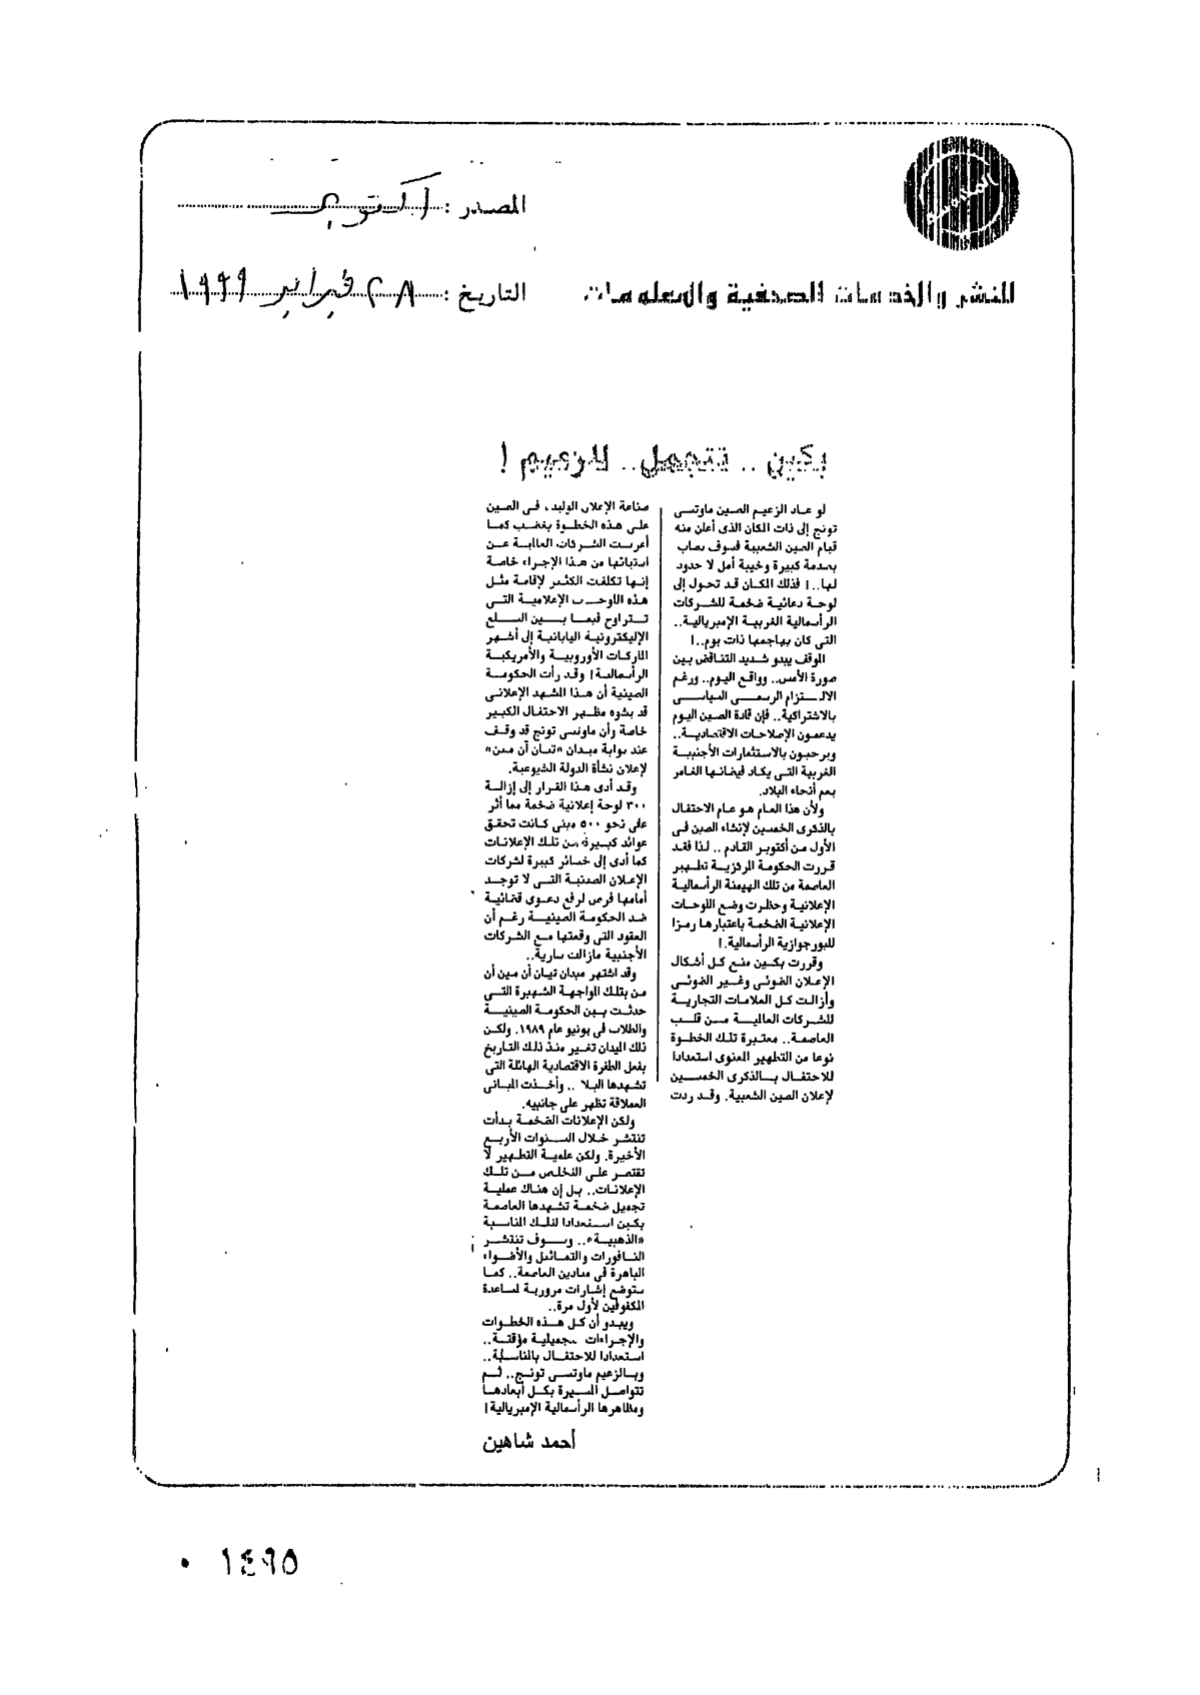 المصدر : أكتوبر
التاريخ : ٢٨ فبراير ١٩٩٩
للنشر والخدمات الصحفية والمعلومات
بكين .. تتجمل .. للزعيم !
لو عاد الزعيم الصين ماوتسى
تونج إلى ذات المكان الذى أعلن منه
قيام الصين الشعبية فسوف يصاب
بصدمة كبيرة وخيبة أمل لا حدود
لها..! فذلك المكان قد تحول إلى
لوحة دعائية ضخمة للشركات
الرأسمالية الغربية الإمبريالية..
التى كان يهاجمها ذات يوم..!
الموقف يبدو شديد التناقض بين
صورة الأمس.. وواقع اليوم.. ورغم
الالتزام الرسمى السياسى
بالاشتراكية.. فإن قادة الصين اليوم
يدعمون الإصلاحات الاقتصادية..
ويرحبون بالاستثمارات الأجنبية
الغربية التى يكاد فيضانها الغامر
يعم أنحاء البلاد.
ولأن هذا العام هو عام الاحتفال
بالذكرى الخمسين لإنشاء الصين فى
الأول من أكتوبر القادم .. لذا فقد
قررت الحكومة المركزية تطهير
العاصمة من تلك الهيمنة الرأسمالية
الإعلانية وحظرت وضع اللوحات
الإعلانية الضخمة باعتبارها رمزا
للبورجوازية الرأسمالية.!
وقررت بكين منع كل أشكال
الإعلان الضوئى وغير الضوئى
وأزالت كل العلامات التجارية
للشركات العالمية من قلب
العاصمة.. معتبرة تلك الخطوة
نوعا من التطهير المعنوى استعدادا
للاحتفال بالذكرى الخمسين
لإعلان الصين الشعبية. وقد ردت
صناعة الإعلان الوليد، فى الصين
على هذه الخطوة بغضب كما
أعربت الشركات العالمية عن
استيائها من هذا الإجراء خاصة
إنها تكلفت الكثير لإقامة مثل
هذه اللوحات الإعلامية التى
تتراوح فيما بين السلع
الإليكترونية اليابانية إلى أشهر
الماركات الأوروبية والأمريكية
الرأسمالية! وقد رأت الحكومة
الصينية أن هذا المشهد الإعلانى
قد يشوه مظهر الاحتفال الكبير
خاصة وأن ماوتسى تونج قد وقف
عند بوابة ميدان «تيان آن مين»
لإعلان نشأة الدولة الشيوعية.
وقد أدى هذا القرار إلى إزالة
٣٠٠ لوحة إعلانية ضخمة مما أثر
على نحو ٥٠٠ مبنى كانت تحقق
عوائد كبيرة من تلك الإعلانات
كما أدى إلى خسائر كبيرة لشركات
الإعلان الصينية التى لا توجد
أمامها فرص لرفع دعوى قضائية
ضد الحكومة الصينية رغم أن
العقود التى وقعتها مع الشركات
الأجنبية مازالت سارية..
وقد اشتهر ميدان تيان آن مين أن
من بتلك الواجهة الشهيرة التى
حدثت بين الحكومة الصينية
والطلاب فى يونيو عام ١٩٨٩. ولكن
ذلك الميدان تغير منذ ذلك التاريخ
بفعل الطفرة الاقتصادية الهائلة التى
تشهدها البلا .. وأخذت المبانى
العملاقة تظهر على جانبيه.
ولكن الإعلانات الضخمة بدأت
تنتشر خلال السنوات الأربع
الأخيرة. ولكن علمية التطهير لا
تقتصر على التخلص من تلك
الإعلانات.. بل إن هناك عملية
تجميل ضخمة تشهدها العاصمة
بكين استعدادا لتلك المناسبة
«الذهبية».. وسوف تنتشر
النافورات والتماثيل والأضواء
الباهرة فى ميادين العاصمة.. كما
ستوضع إشارات مرورية لمساعدة
المكفوفين لأول مرة..
ويبدو أن كل هذه الخطوات
والإجراءات تجميلية مؤقتة..
استعدادا للاحتفال بالمناسبة..
وبالزعيم ماوتسى تونج.. ثم
تتواصل المسيرة بكل أبعادها
ومظاهرها الرأسمالية الإمبريالية!
أحمد شاهين
١٤٩٥